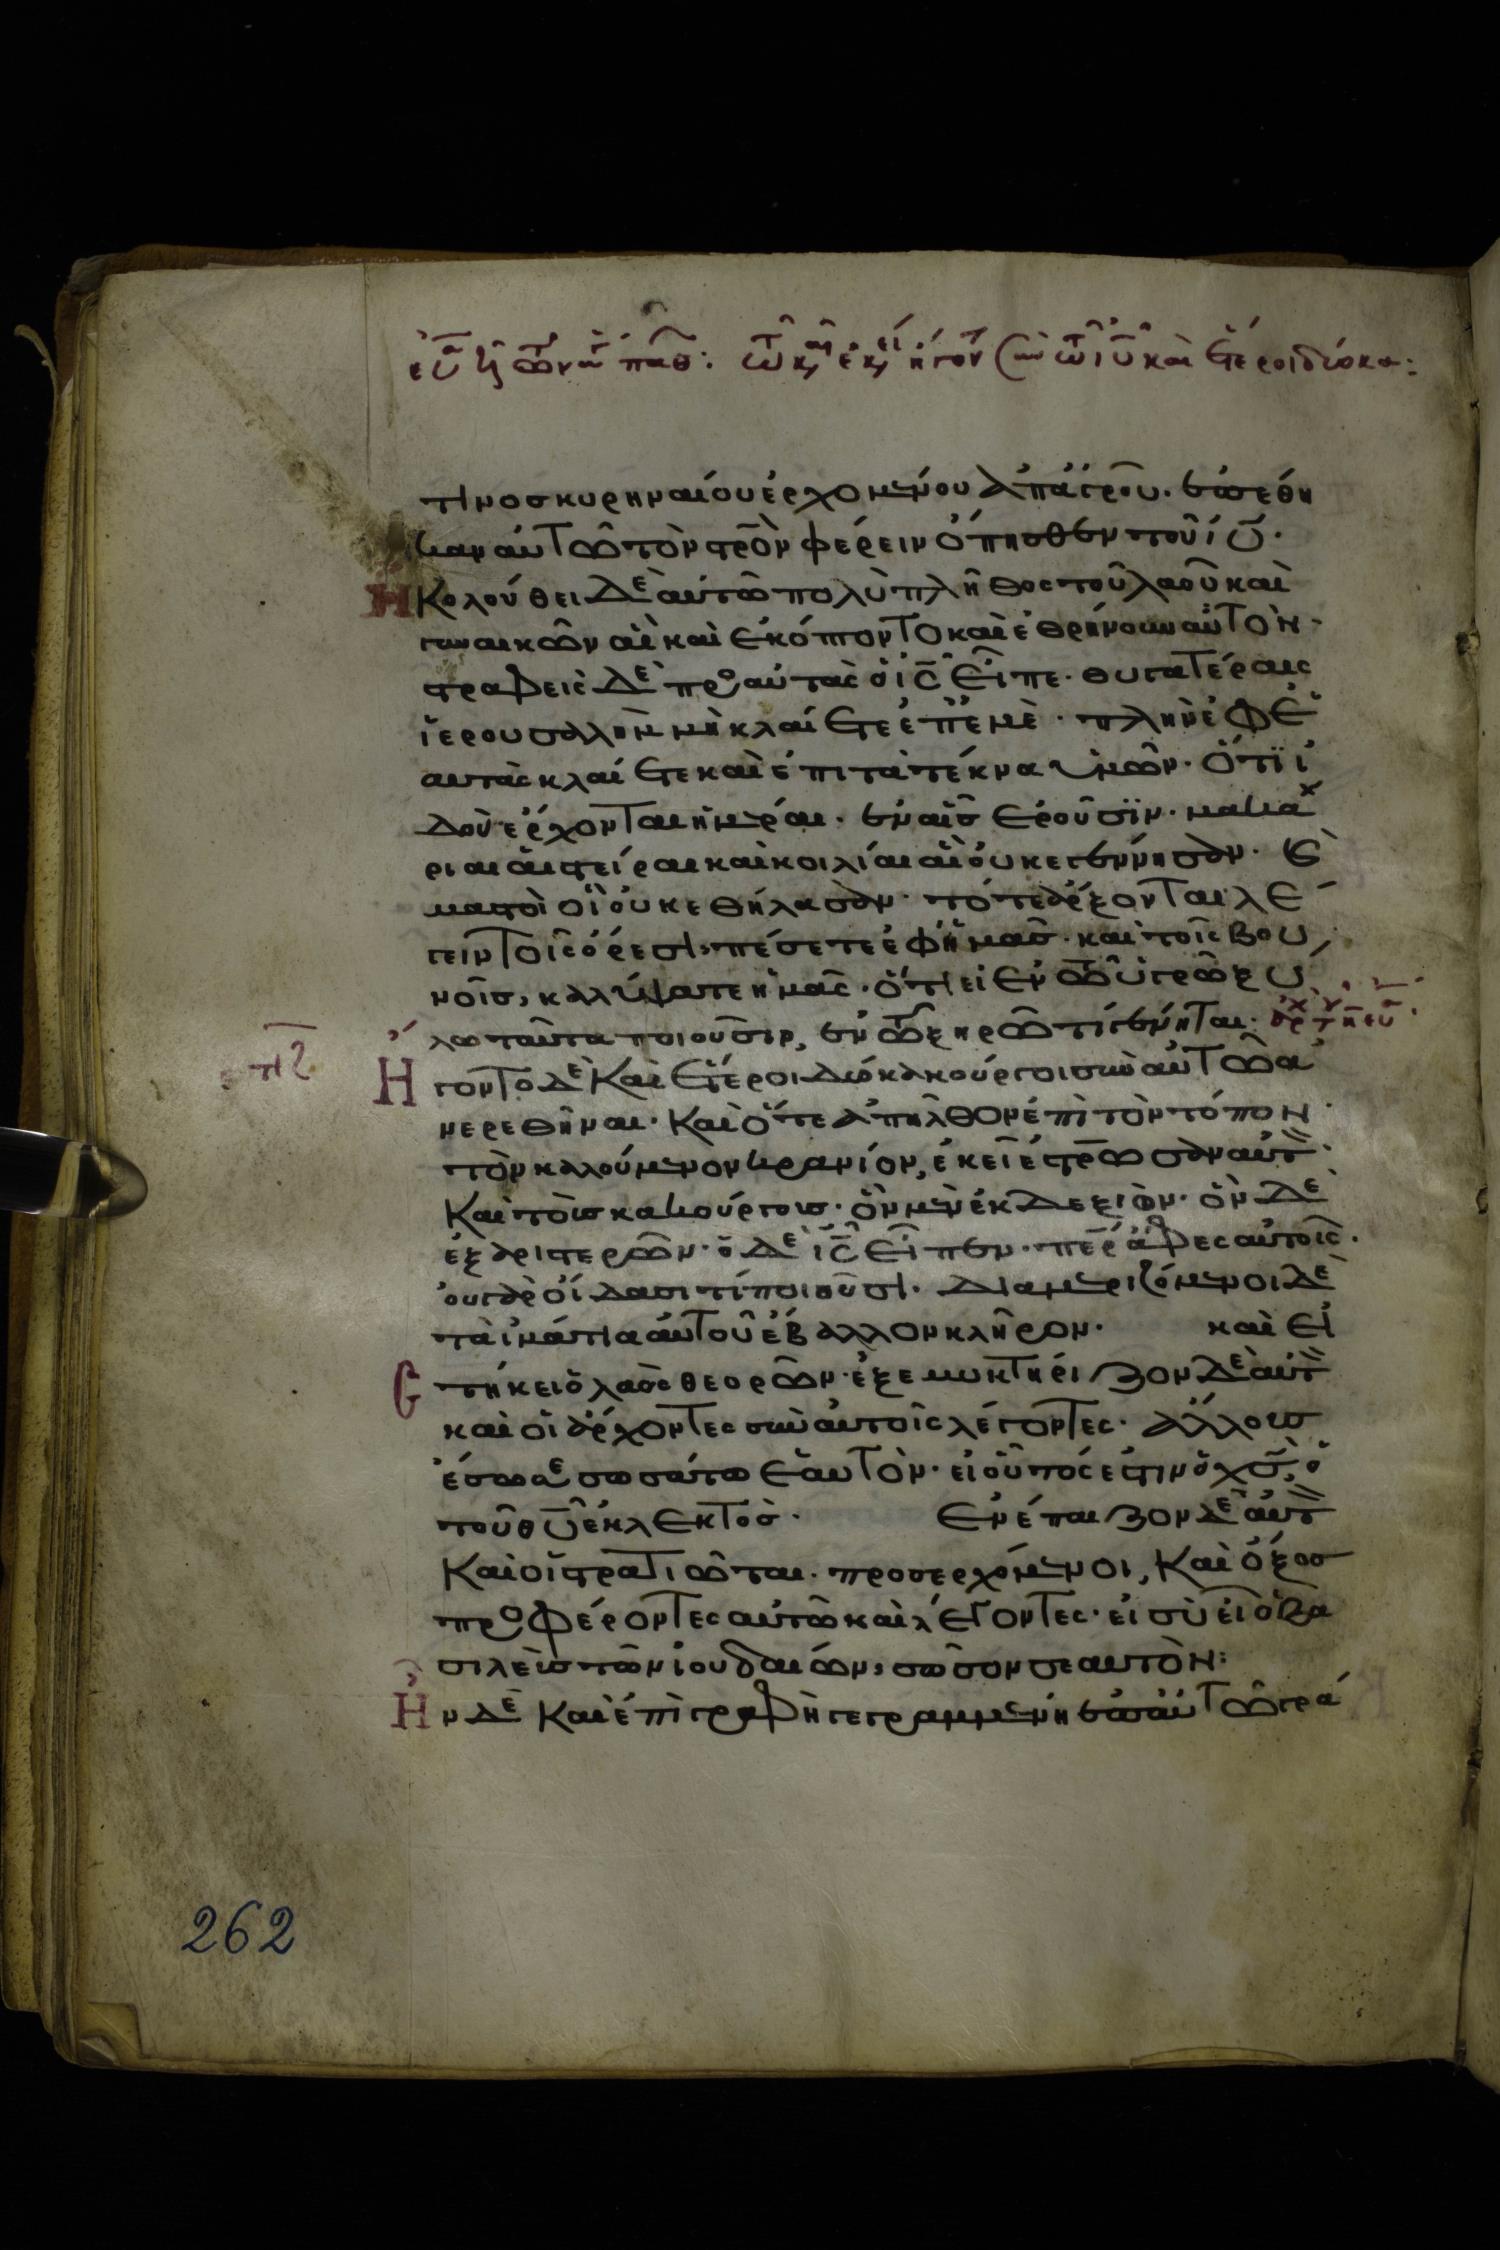 τινος κυρηναίου ἐρχομένου ἀπ' ἀγροῦ. ἐπέθη
καν αὐτῶ τὸν σ̅ρ̅ο̅ν φέρειν ὄπησθεν τοῦ ι̅υ̅.
Ηκολούθει δὲ αὐτῶ πολὺ πλῆθος τοῦ λαοῦ καὶ
γυναικῶν αἳ καὶ ἐκόπτοντο καὶ ἐθρήνουν αὐτὸν.
στραφεὶς δὲ πρὸ αὐτὰς ὁ ι̅ς̅ εἶπε. θυγατέραις
ἱερουσαλὴμ μὴ κλαίετε ἐπ' ἐμὲ. πλὴν ἐφ' ἑ
αυτὰς κλαίετε καὶ ἐπι τὰ τέκνα ὑμῶν. ὅτι ἰ
δοὺ ἔρχονται ἡμέραι. ἐν αἷς ἐροῦσιν. μακά
ριαι αἱ στείραι καὶ κοιλίαι αἳ οὐκ ἐγέννησαν. καὶ
μαστοὶ οἳ οὐκ ἐθήλασαν. τότε ἄρξονται λέ
γειν τοῖς ὄρεσι, πέσετε ἐφ' ἡμᾶς. καὶ τοῖς βου
νοῖς, καλύψατε ἡμᾶς. ὅτι εἰ ἐν τῶ ὑγρῶ ξύ
λω ταῦτα ποιοῦσιν, ἐν τῶ ξηρῶ τί γένηται.
Ηγοντο δὲ καὶ ἕτεροι δύο κακούργοι σὺν αὐτῶ ἀ
νερεθῆναι. Καὶ ὅτε ἀπῆλθον ἐπὶ τὸν τόπον
τὸν καλούμενον κρανίον, ἐκεῖ ἐσ̅ρ̅ωσαν αὐτ
Καὶ τοὺς κακούργους. ὃν μὲν ἐκ δεξιὸν. ὃν δὲ
ἐξ ἀριστερῶν. ὁ δὲ ι̅ς̅ εἶπεν. π̅ε̅ρ̅ ἄφες αὐτοῖς.
οὐ γὰρ οἴδασι τί ποιοῦσι. Διαμεριζόμενοι δὲ
τὰ ἱμάτια αὐτοῦ ἔβαλλον κλῆρον. καὶ εἱ
Ετήκει ὁ λαὸς θεορῶν. ἐξεμυκτηρίζον δὲ αὐτ
καὶ οἱ ἄρχοντες σὺν αὐτοῖς λέγοντες. ἄλλους
ἔσωσε σωσάτω ἑαυτὸν. εἰ οὗτός ἐστιν ὁ χ̅ς̅ ὁ
τοῦ θ̅υ̅ ἐκλεκτὸς. Ἐνέπαιζον δὲ αὐτ
Καὶ οἱ στρατιῶται. προσερχόμενοι, Καὶ ὄξος
προφέροντες αὐτῶ καὶ λέγοντες. εἰ σὺ εἶ ὁ βα
σιλεὺς τῶν ἰουδαιῶν, σῶσον σεαυτὸν:
Ην δὲ Καὶ ἐπιγραφὴ γεγραμμένη ἐπ' αὐτῶ γρά
262